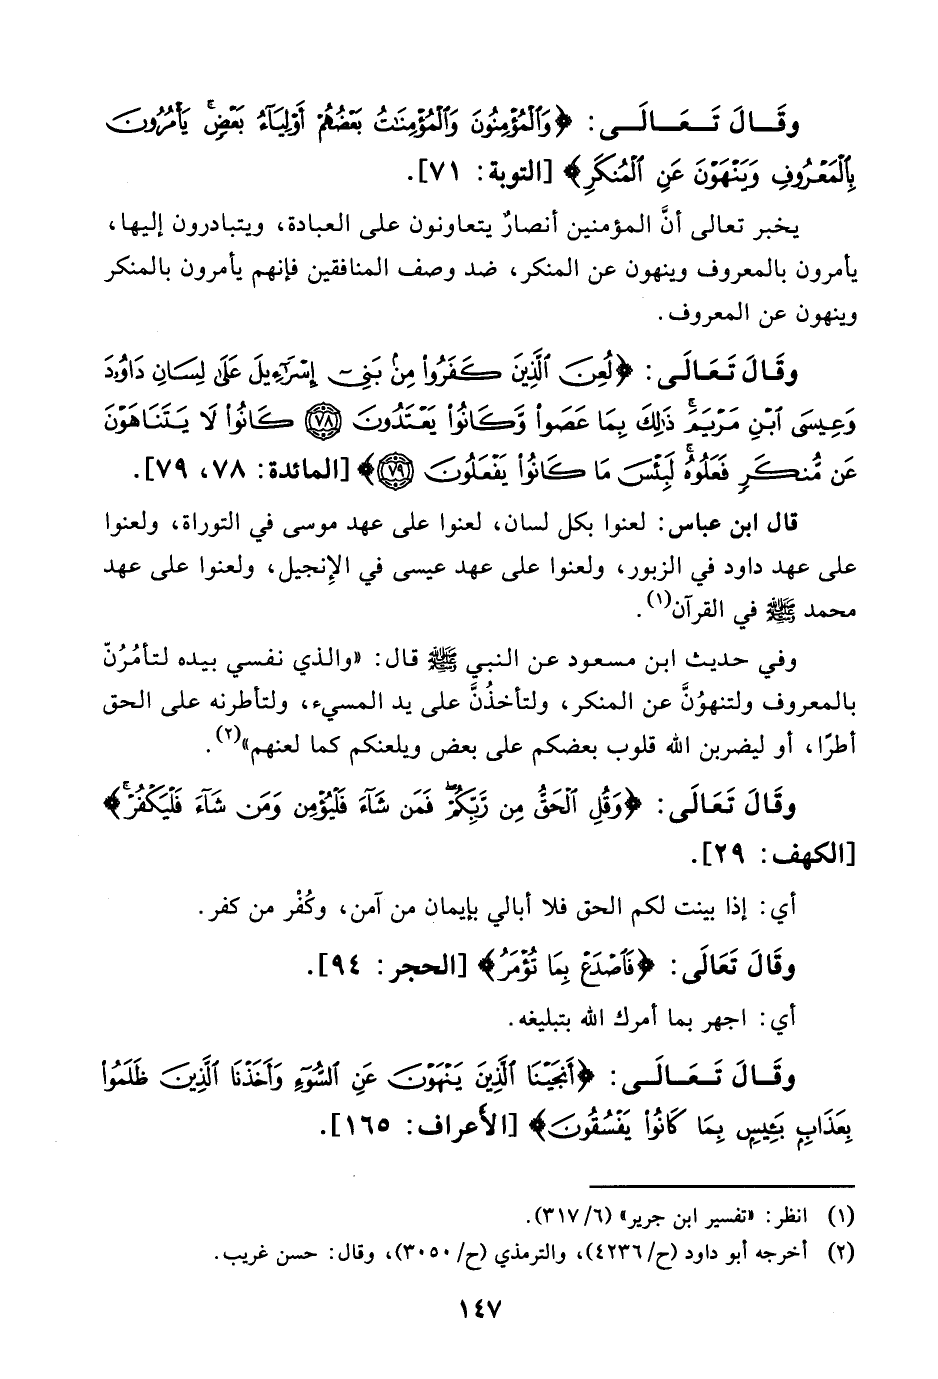 وقَــالَ تَــعَــالَــى: ﴿وَٱلْمُؤْمِنُونَ وَٱلْمُؤْمِنَٰتُ بَعْضُهُمْ أَوْلِيَآءُ بَعْضٍۚ يَأْمُرُونَ
بِٱلْمَعْرُوفِ وَيَنْهَوْنَ عَنِ ٱلْمُنكَرِ﴾ [التوبة: ٧١].
يخبر تعالى أنَّ المؤمنين أنصارٌ يتعاونون على العبادة، ويتبادرون إليها،
يأمرون بالمعروف وينهون عن المنكر، ضد وصف المنافقين فإنهم يأمرون بالمنكر
وينهون عن المعروف.
وقَـالَ تَـعَـالَـى: ﴿لُعِنَ ٱلَّذِينَ كَفَرُوا۟ مِنۢ بَنِىٓ إِسْرَٰٓءِيلَ عَلَىٰ لِسَانِ دَاوُۥدَ
وَعِيسَى ٱبْنِ مَرْيَمَۚ ذَٰلِكَ بِمَا عَصَوا۟ وَّكَانُوا۟ يَعْتَدُونَ ۝٧٨ كَانُوا۟ لَا يَتَنَاهَوْنَ
عَن مُّنكَرٍ فَعَلُوهُۚ لَبِئْسَ مَا كَانُوا۟ يَفْعَلُونَ ۝٧٩﴾ [المائدة: ٧٨، ٧٩].
قال ابن عباس: لعنوا بكل لسان، لعنوا على عهد موسى في التوراة، ولعنوا
على عهد داود في الزبور، ولعنوا على عهد عيسى في الإنجيل، ولعنوا على عهد
محمد ﷺ في القرآن(١).
وفي حديث ابن مسعود عن النبي ﷺ قال: «والذي نفسي بيده لتأمُرُنّ
بالمعروف ولتنهوُنَّ عن المنكر، ولتأخذُنَّ على يد المسيء، ولتأطرنه على الحق
أطرًا، أو ليضربن الله قلوب بعضكم على بعض ويلعنكم كما لعنهم»(٢).
وقَالَ تَعَالَى: ﴿وَقُلِ ٱلْحَقُّ مِن رَّبِّكُمْۖ فَمَن شَآءَ فَلْيُؤْمِن وَمَن شَآءَ فَلْيَكْفُرْۚ﴾
[الكهف: ٢٩].
أي: إذا بينت لكم الحق فلا أبالي بإيمان من آمن، وكُفْر من كفر.
وقَالَ تَعَالَى: ﴿فَٱصْدَعْ بِمَا تُؤْمَرُ﴾ [الحجر: ٩٤].
أي: اجهر بما أمرك الله بتبليغه.
وقَــالَ تَــعَــالَــى: ﴿أَنجَيْنَا ٱلَّذِينَ يَنْهَوْنَ عَنِ ٱلسُّوٓءِ وَأَخَذْنَا ٱلَّذِينَ ظَلَمُوا۟
بِعَذَابٍۭ بَـِٔيسٍۭ بِمَا كَانُوا۟ يَفْسُقُونَ﴾ [الأعراف: ١٦٥].
(١) انظر: «تفسير ابن جرير» (٣١٧/٦).
(٢) أخرجه أبو داود (ح/٤٢٣٦)، والترمذي (ح/٣٠٥٠)، وقال: حسن غريب.
١٤٧